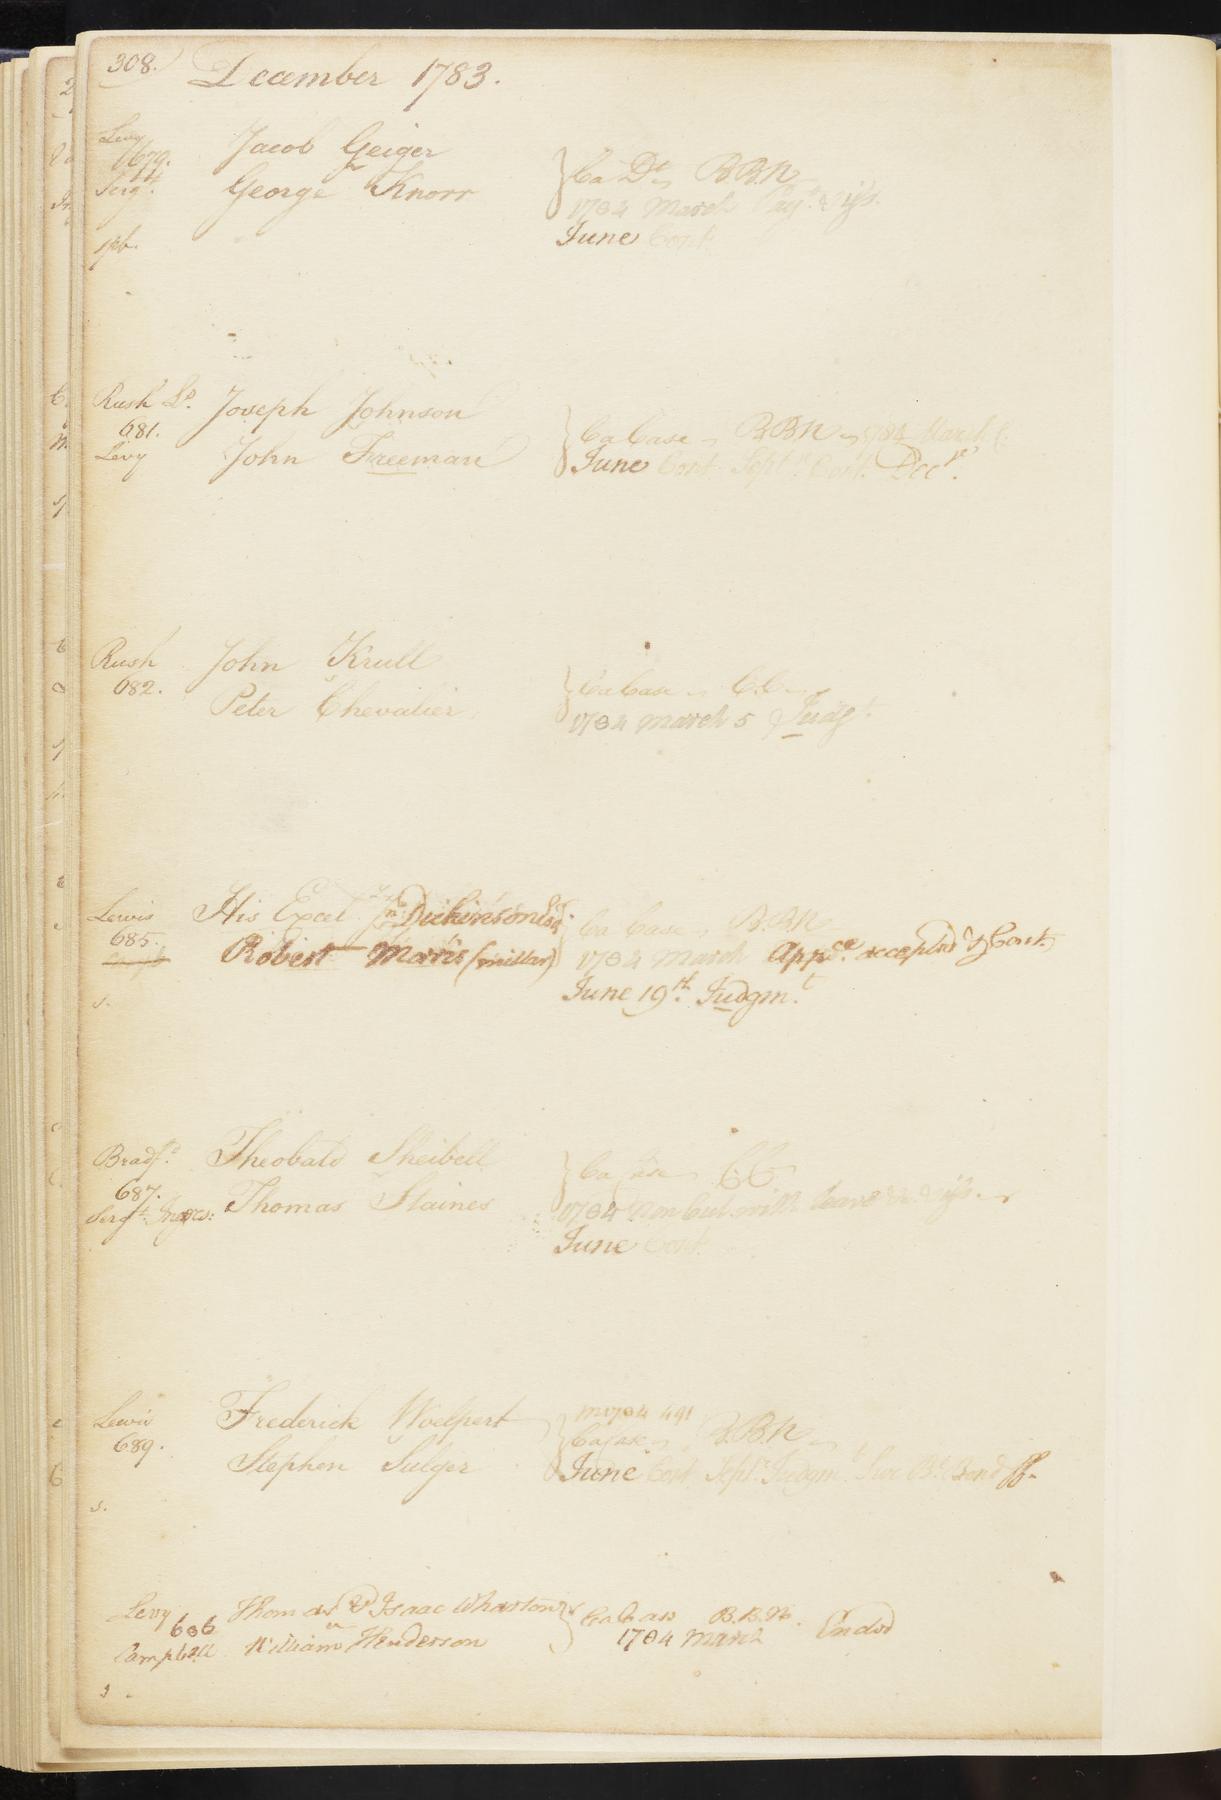 308. December 1783.
Levy Jacob Geiger
679. vs
Serg.t George Knorr } Ca Dt. B.B.N.
1784 March
spb. June Cont.
Rush Lo. Joseph Johnson
681. } Ca Case B.B.N. 1784 March C.
Levy John Freeman June Cont. Sept. Cont. Dec.r
Rush John Krull
682. v } Ca Case C.C.
Peter Chevalier 1784 March 5 Judg.t
Lewis His Excel. Jn. Dickinson Esq.
685. } Ca Case B.B.N.
Robert Morris (millar) 1784 March App.ce accepted & Cont.
s. June 19th. Judgm.t
Bradf.d Theobald Sheibell
687. } Ca Case C.C.
Serg.t Thomas Staines
1784 Non Cul with leave &c
June Cont.
Lewis Frederick Woelpert M 1784 491
689. } Ca Case B.B.N.
Stephen Sulger June Cont. Sept. Judgm.t Bond
s.
Levy Thomas & Isaac Wharton
686 vs } Ca Case B.B.N. Ended
Campbell William Henderson 1784 March
s